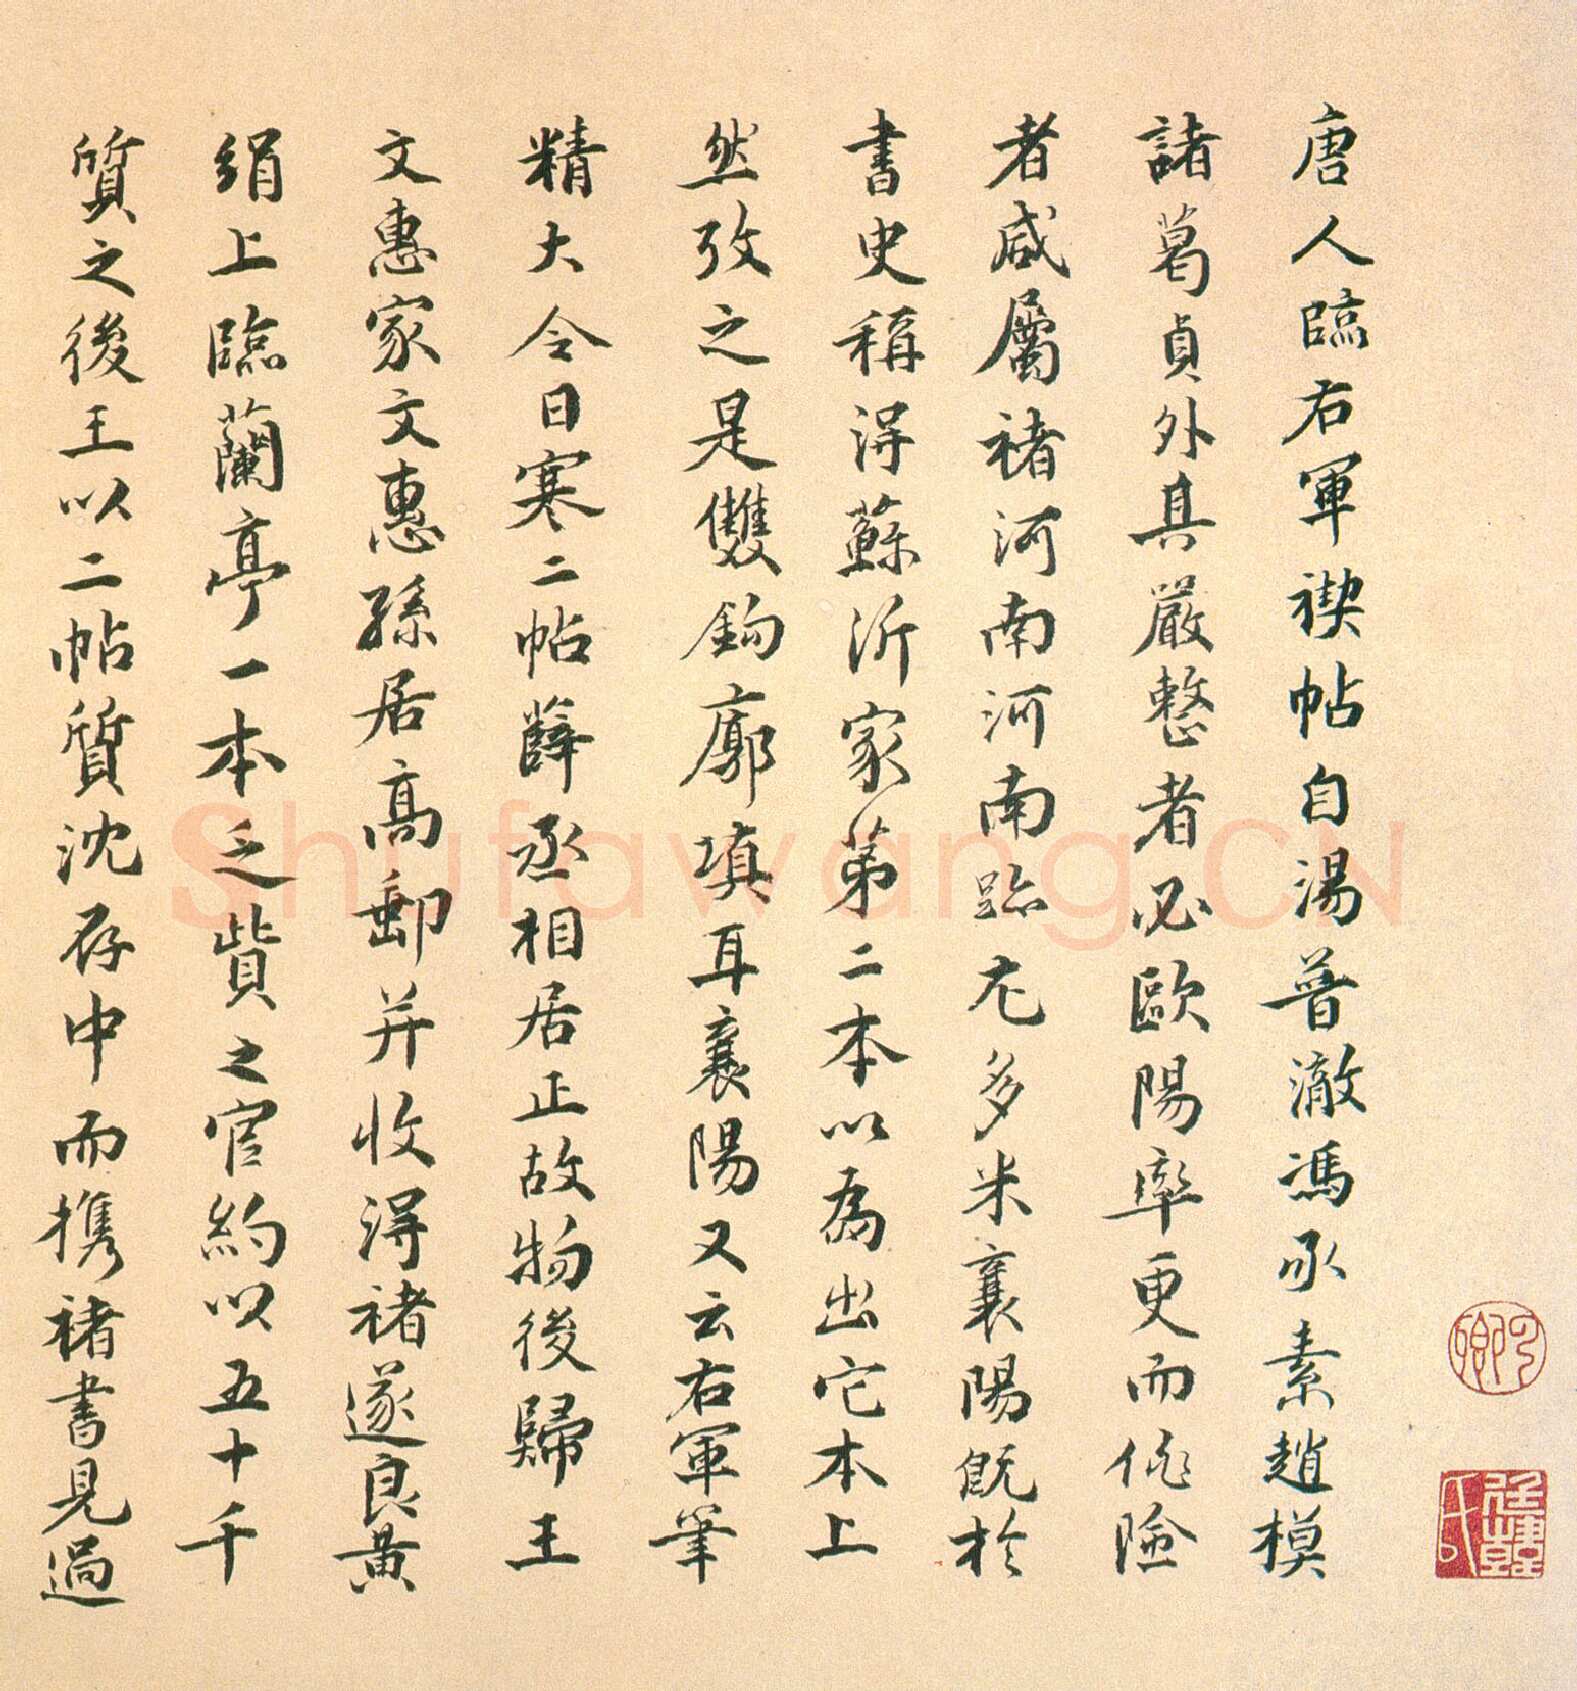 唐人臨右軍禊帖自湯普澈馮承素趙模
諸葛貞外其嚴整者必歐陽率更而佻險
者咸屬褚河南河南跡尤多米襄陽既於
書史稱得蘇沂家第二本以為出它本上
然攷之是雙鉤廓填耳襄陽又云右軍筆
精大令日寒二帖薛丞相居正故物後歸王
文惠家文惠孫居高郵并收得褚遂良黃
絹上臨蘭亭一本乏貲之官約以五十千
質之後王以二帖質沈存中而攜褚書見過
Shufawang.CN